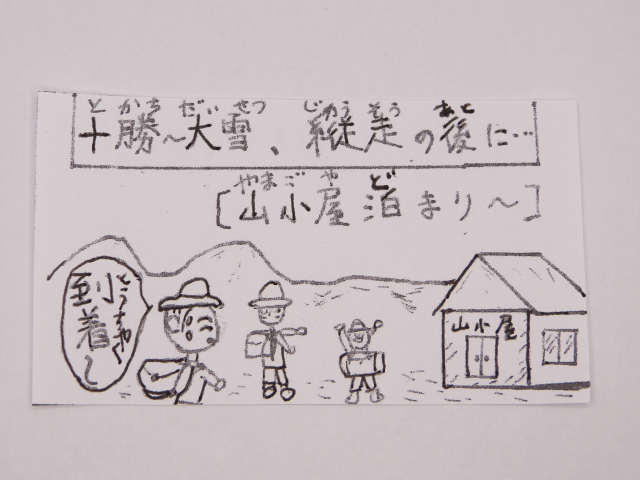 と かち だい せつ じゅう そう あと
十勝～大雪、縦走の後に…
やま ご や ど
[山小屋泊まり～]
とうちゃく
到着～
山小屋